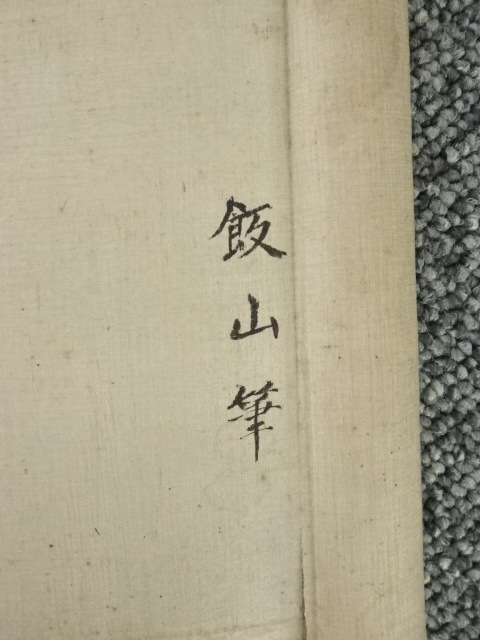 飯山筆